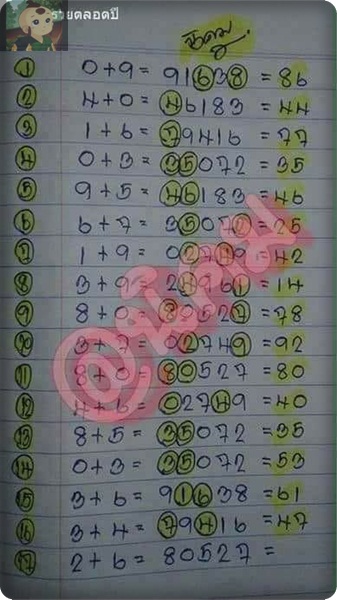 รวยตลอดปี
นิคม
1 0+9= 91638 = 86
2 4+0= 46183 = 44
3 1+6= 79416 = 77
4 0+3= 35072 = 35
5 9+5= 46183 = 46
6 6+7= 35072 = 25
7 1+9= 02749 = 42
8 3+9= 24961 = 14
9 8+0= 80527 = 78
10 3+7= 02749 = 92
11 8+0= 80527 = 80
12 4+6= 02749 = 40
13 8+5= 35072 = 35
14 0+3= 35072 = 53
15 3+6= 91638 = 61
16 3+4= 79416 = 47
17 2+6= 80527 =
@นิคม